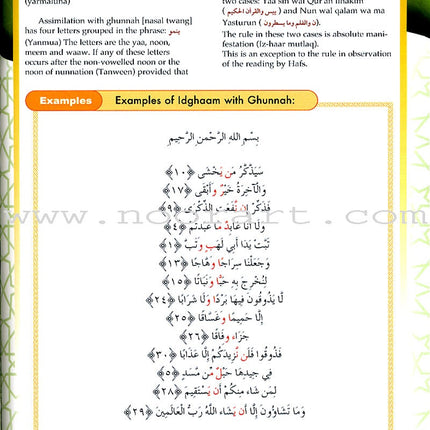 (yarmaluna)
Assimilation with ghunnah [nasal twang]
has four letters grouped in the phrase: ينمو
(Yanmua) The letters are the yaa, noon,
meem and waaw. If any of these letters
occurs after the non-vowelled noon or the
noon of nunnation (Tanween) provided that
two cases: Yaa sin wal Qur'an ilhakim
( يس والقرآن الحكيم ) and Nun wal qalam wa ma
Yasturun ( ن والقلم وما يسطرون ).
The rule in these two cases is absolute mani-
festation (Iz-haar mutlaq).
This is an exception to the rule in observation
of the reading by Hafs.
Examples
Examples of Idghaam with Ghunnah:
بِسْمِ اللهِ الرَّحْمنِ الرَّحِيمِ
سَيَذَّكَّرُ مَن يَخْشَى ﴿١٠﴾
وَالْآخِرَةُ خَيْرٌ وَأَبْقَى ﴿١٧﴾
فَذَكِّرْ إِن نَّفَعَتِ الذِّكْرَى ﴿٩﴾
وَلَا أَنَا عَابِدٌ مَّا عَبَدتُّمْ ﴿٤﴾
تَبَّتْ يَدَا أَبِي لَهَبٍ وَتَبَّ ﴿١﴾
وَجَعَلْنَا سِرَاجًا وَهَّاجًا ﴿١٣﴾
لِنُخْرِجَ بِهِ حَبًّا وَنَبَاتًا ﴿١٥﴾
لَّا يَذُوقُونَ فِيهَا بَرْدًا وَلَا شَرَابًا ﴿٢٤﴾
إِلَّا حَمِيمًا وَغَسَّاقًا ﴿٢٥﴾
جَزَاء وِفَاقًا ﴿٢٦﴾
فَذُوقُوا فَلَن نَّزِيدَكُمْ إِلَّا عَذَابًا ﴿٣٠﴾
فِي جِيدِهَا حَبْلٌ مِّن مَّسَدٍ ﴿٥﴾
لِمَن شَاء مِنكُمْ أَن يَسْتَقِيمَ ﴿٢٨﴾
وَمَا تَشَاؤُونَ إِلَّا أَن يَشَاء اللَّهُ رَبُّ الْعَالَمِينَ ﴿٢٩﴾
www.noorart.com